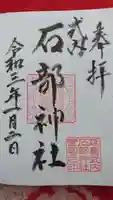 奉拝
式内
石部神社
令和三年一月二日